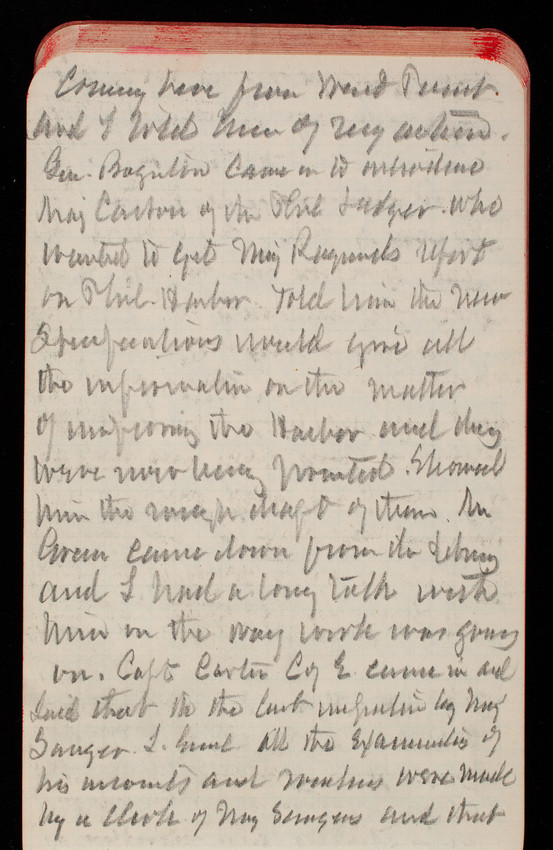 Coming here from West Point
and I told him of my action.
Gen. Boynton came in to introduce
Maj Carson of the Phil Ledger who
wanted to get Maj Raymonds report
on Phil. Harbor. Told him the new
Specifications would give all
the information on the matter
of improving the Harbor and they
were now being printed. Showed
him the rough draft of them. Mr
Green came down from the Library
and I had a long talk with
him on the way work was going
on. Capt Carter Cof E. came in and
said that in the last inspection by Maj
Sanger I. Genl all the Examination of
his accounts and vouchers were made
by a Clerk of Maj Sangers and that